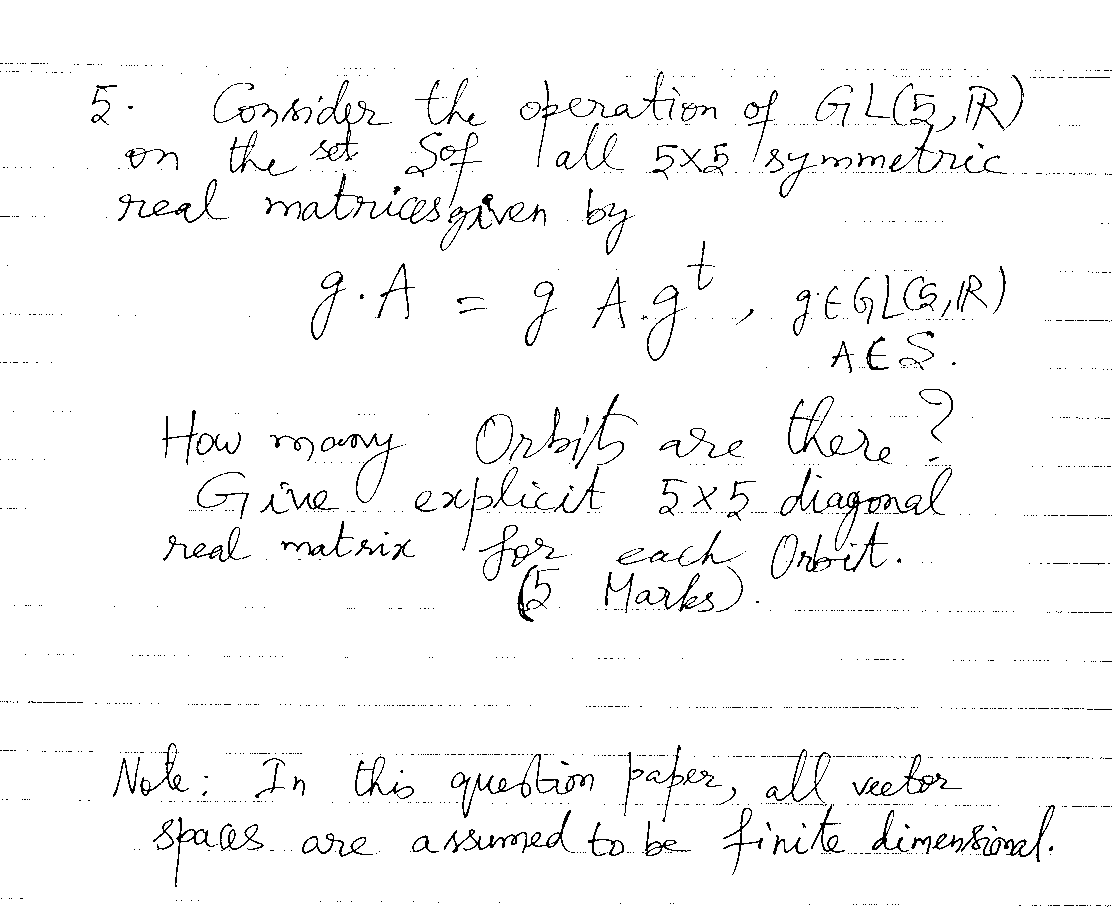 5. Consider the operation of GL(5,R)
on the set S of all 5x5 symmetric
real matrices given by
g.A = g A.g^t, g∈GL(5,R)
A∈S.
How many Orbits are there?
Give explicit 5x5 diagonal
real matrix for each Orbit.
(5 Marks).
Note: In this question paper, all vector
spaces are assumed to be finite dimensional.